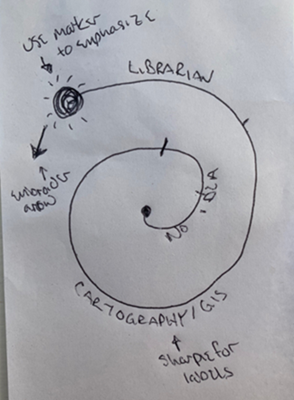 USE MARKER
TO EMPHASIZE
LIBRARIAN
EMBROIDER
ARROW
NO IDEA
CARTOGRAPHY/GIS
Sharpie for
labels